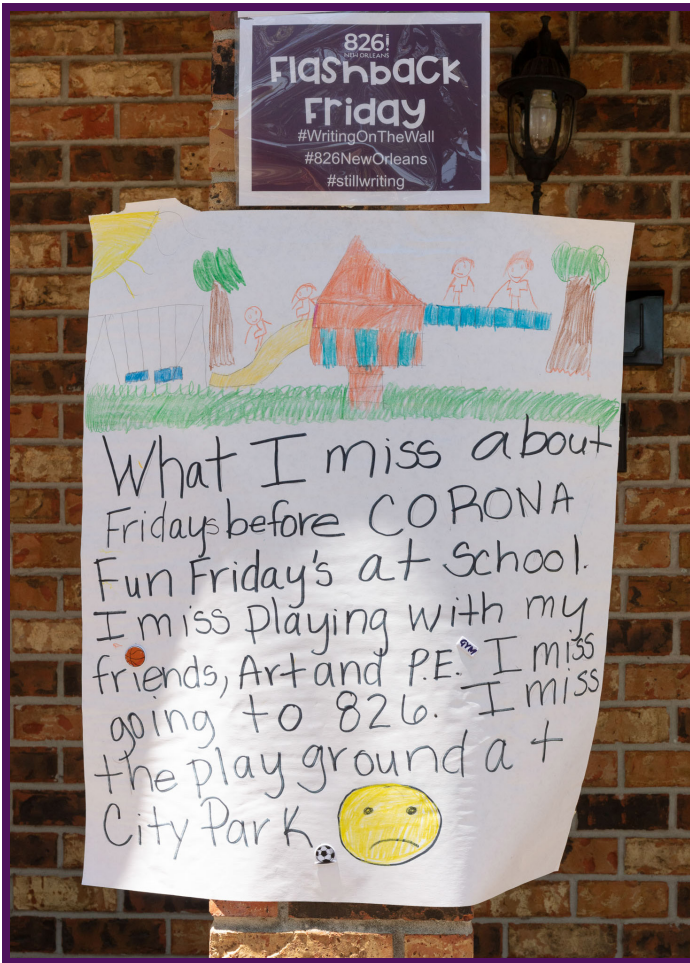 826!
NEW ORLEANS
Flashback
Friday
#WritingOnTheWall
#826NewOrleans
#stillwriting
What I miss about
Fridays before CORONA
Fun Friday's at School.
I miss playing with my
friends, Art and P.E. GYM I miss
going to 826. I miss
the play ground at
City Park